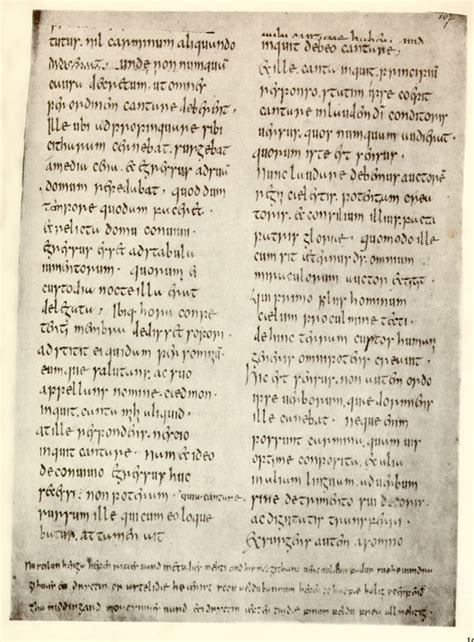 107
tatur. nil carminum aliquando
didicerat. unde non numquam
causa decretum. ut omnes
per ordinem cantare deberent.
ille ubi adpropinquare sibi
citharam cernebat. surgebat
a media cena. et egressus ad suam
domum repedabat. quod dum
tempore quodam faceret.
et relicta domu conuiuii
egressus esset ad stabula
iumentorum. quorum ei
custodia nocte illa erat
delegata. ibiq. hora conpe
tenti membra dedisset sopori.
adstitit ei quidam per somnium
eumque salutans. ac suo
appellans nomine. caedmon
inquit. canta mihi aliquid.
at ille respondens. nescio
inquit cantare. nam et ideo
de conuiuio egressus huc
secessi: non poteram quia cantare.
rursum ille qui cum eo loque
batur. attamen ait
cantare habes
inquit debeo cantare.
Et ille. canta inquit. principium
responso. statim ipse coepit
cantare in laudem di conditoris
uersus. quos numquam audierat.
quorum iste est sensus.
nunc laudare debemus auctorem
regni caelestis. potentiam crea
toris. et consilium illius. facta
patris gloriae. quomodo ille
cum sit aeternus ds. omnium
miraculorum auctor extitit.
qui primo filiis hominum
caelum pro culmine tecti.
dehinc terram custos humani
generis omnipotens creauit.
Hic est sensus. non autem ordo
ipse uerborum. quae dormiens
ille canebat. neque enim
possunt carmina. quamuis
optime conposita. ex alia
in aliam linguam. ad uerbum
sine detrimento sui decoris.
ac dignitatis transferri.
Exsurgens autem a somno
Nu scilun herga hefenricæs uard metudæs mehti and his modgithanc uerc uuldurfadur sue he uundra
gihuæs eci dryctin or astelidæ he ærist scop aeldubarnum hefen to hrofæ halig sceppend
tha middingard moncynnæs uard eci dryctin æfter tiadæ firum foldu frea allmehtig.